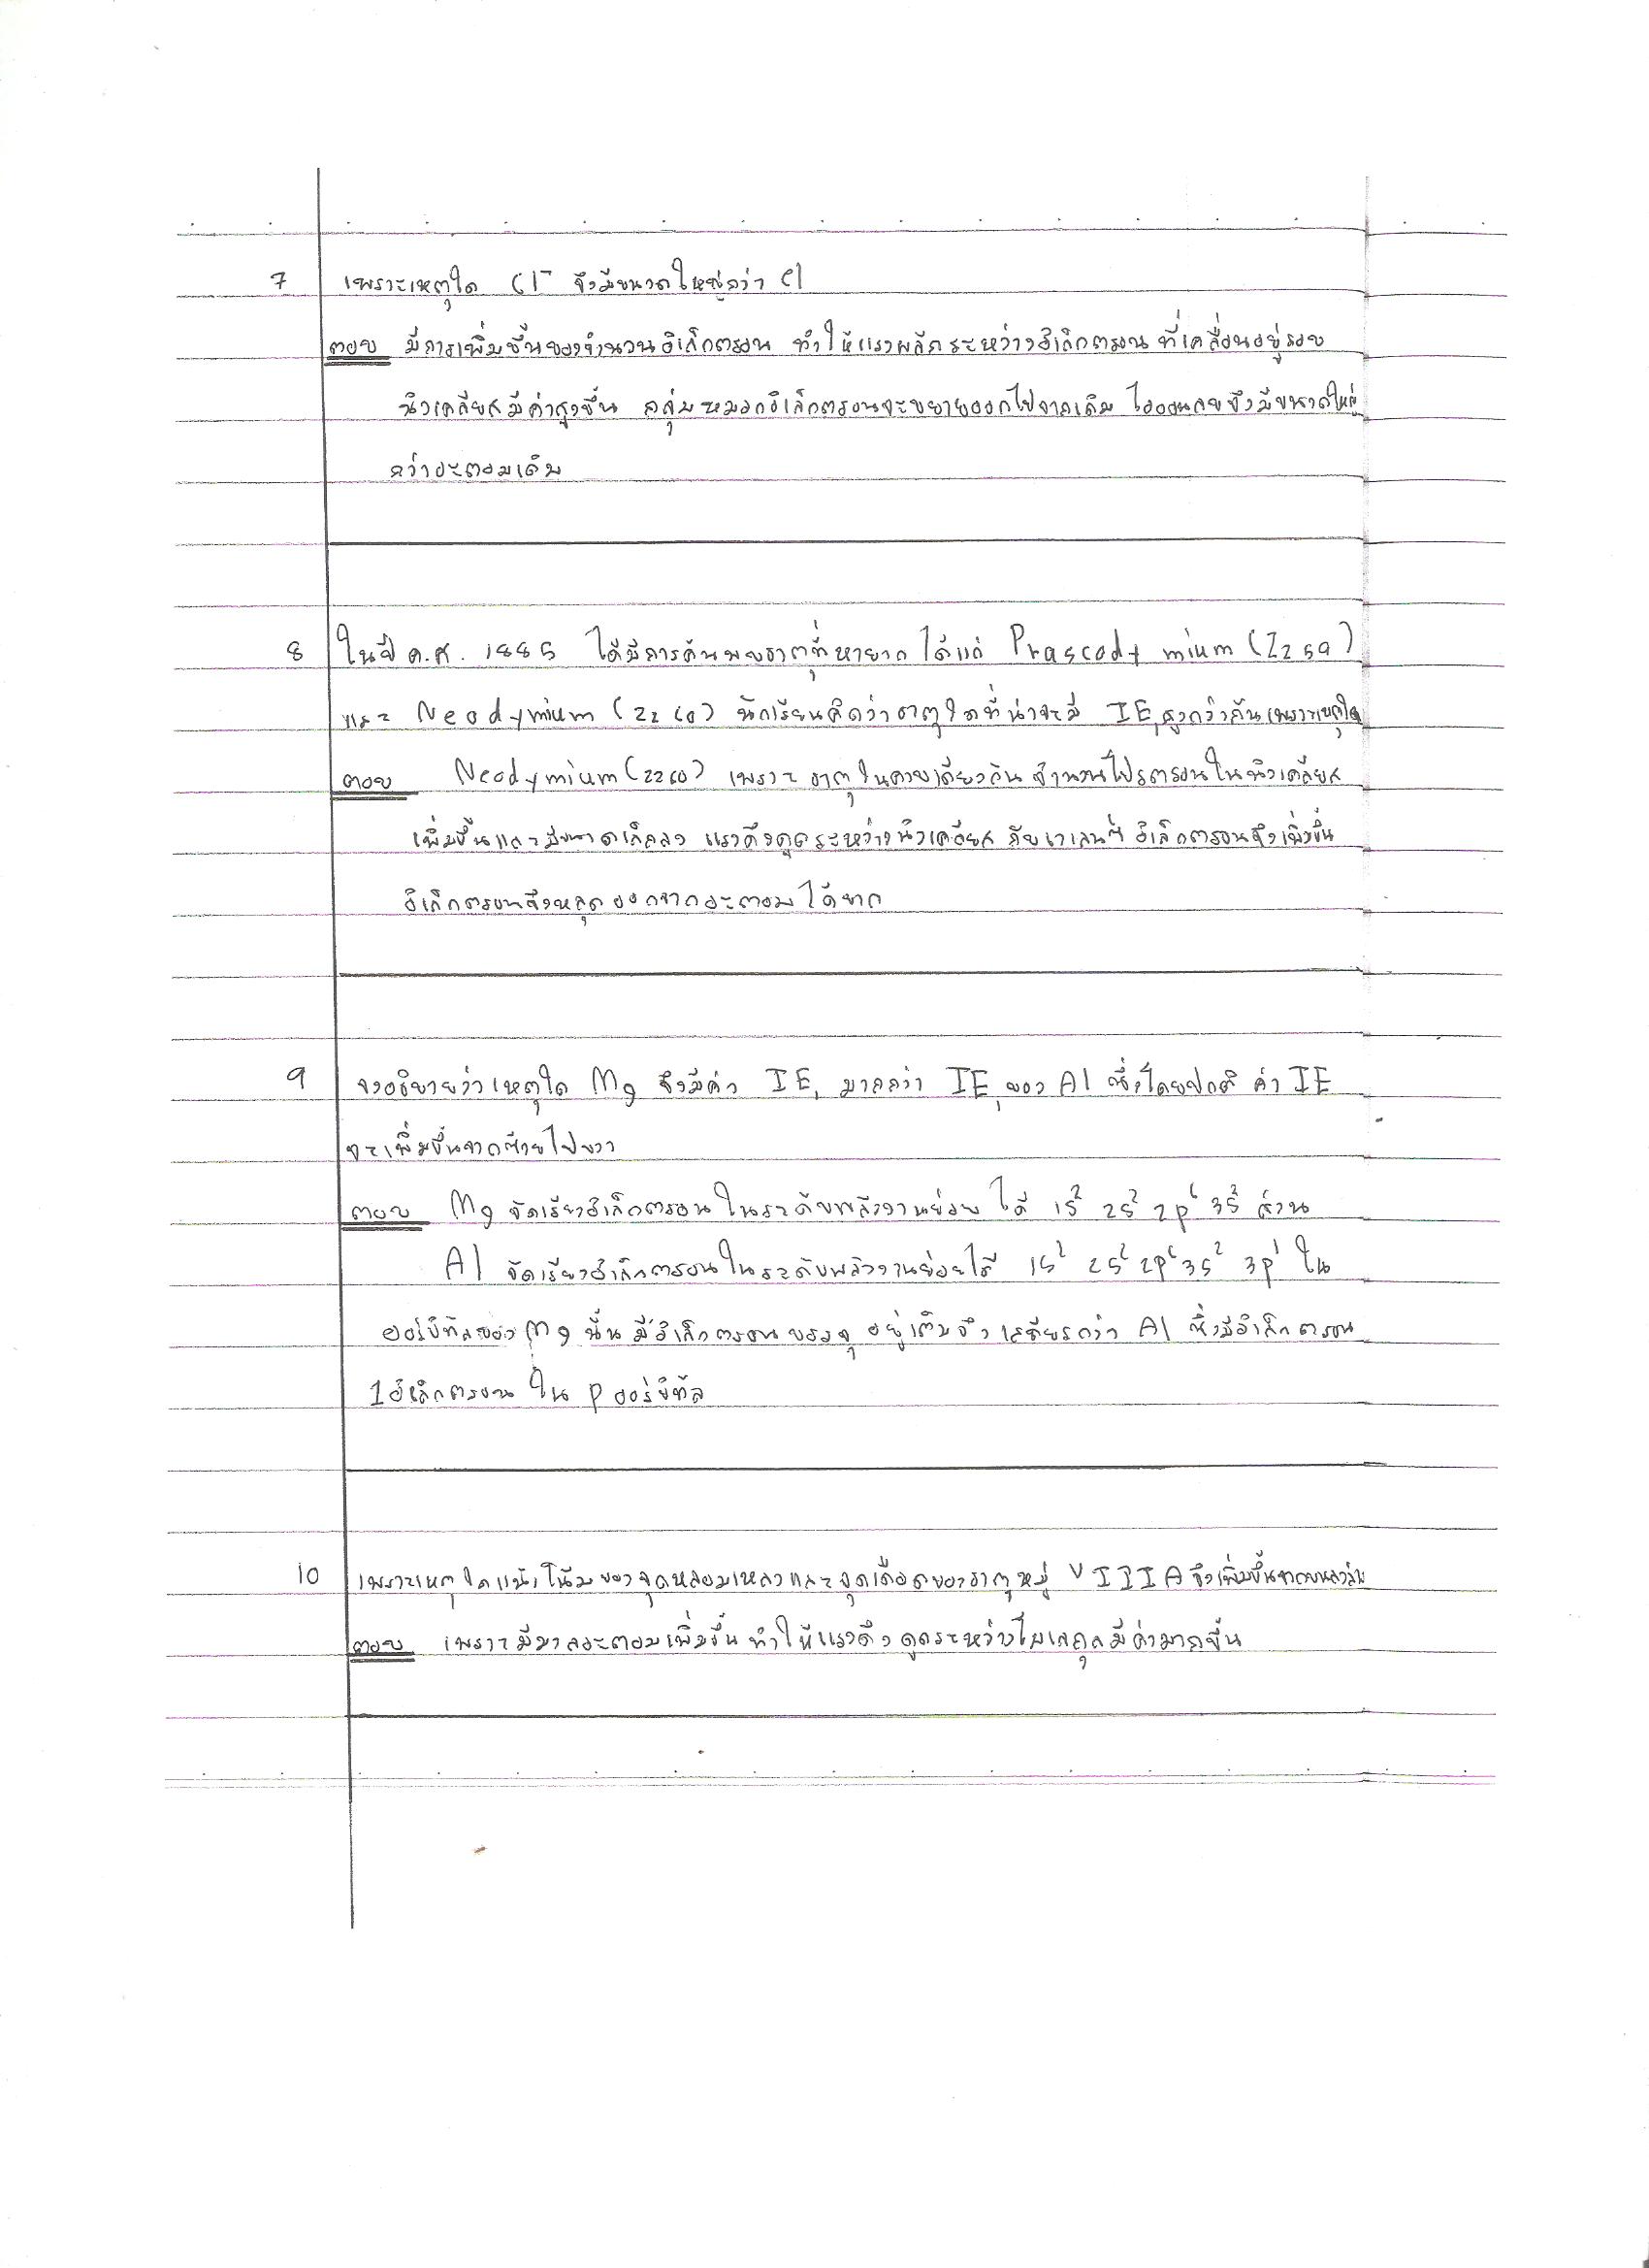 7 เพราะเหตุใด Cl⁻ จึงมีขนาดใหญ่กว่า Cl
ตอบ มีการเพิ่มขึ้นของจำนวนอิเล็กตรอน ทำให้แรงผลักระหว่างอิเล็กตรอนที่เคลื่อนอยู่รอบ
นิวเคลียสมีค่าสูงขึ้น กลุ่มหมอกอิเล็กตรอนจะขยายออกไปจากเดิม ไอออนลบจึงมีขนาดใหญ่
กว่าอะตอมเดิม
8 ในปี ค.ศ. 1885 ได้มีการค้นพบธาตุที่หายาก ได้แก่ Prascodymium (Z=59)
และ Neodymium (Z=60) นักเรียนคิดว่าธาตุใดที่น่าจะมี IE₁ สูงกว่ากันเพราะเหตุใด
ตอบ Neodymium (Z=60) เพราะ ธาตุในคาบเดียวกัน จำนวนโปรตอนในนิวเคลียส
เพิ่มขึ้นและมีขนาดเล็กลง แรงดึงดูดระหว่างนิวเคลียส กับเวเลนซ์อิเล็กตรอนจึงเพิ่มขึ้น
อิเล็กตรอนจึงหลุดออกจากอะตอมได้ยาก
9 จงอธิบายว่าเหตุใด Mg จึงมีค่า IE₁ มากกว่า IE₁ ของ Al ซึ่งโดยปกติ ค่า IE
จะเพิ่มขึ้นจากซ้ายไปขวา
ตอบ Mg จัดเรียงอิเล็กตรอนในระดับพลังงานย่อย ได้ 1s² 2s² 2p⁶ 3s² ส่วน
Al จัดเรียงอิเล็กตรอนในระดับพลังงานย่อยได้ 1s² 2s² 2p⁶ 3s² 3p¹ ใน
ออร์บิทัลของ Mg นั้น มีอิเล็กตรอนบรรจุ อยู่เต็มจึงเสถียรกว่า Al ซึ่งมีอิเล็กตรอน
1 อิเล็กตรอน ใน p ออร์บิทัล
10 เพราะเหตุใดแนวโน้มของจุดหลอมเหลวและจุดเดือดของธาตุหมู่ VIIIA จึงเพิ่มขึ้นจากบนลงล่าง
ตอบ เพราะมีมวลอะตอมเพิ่มขึ้น ทำให้แรงดึงดูดระหว่างโมเลกุลมีค่ามากขึ้น